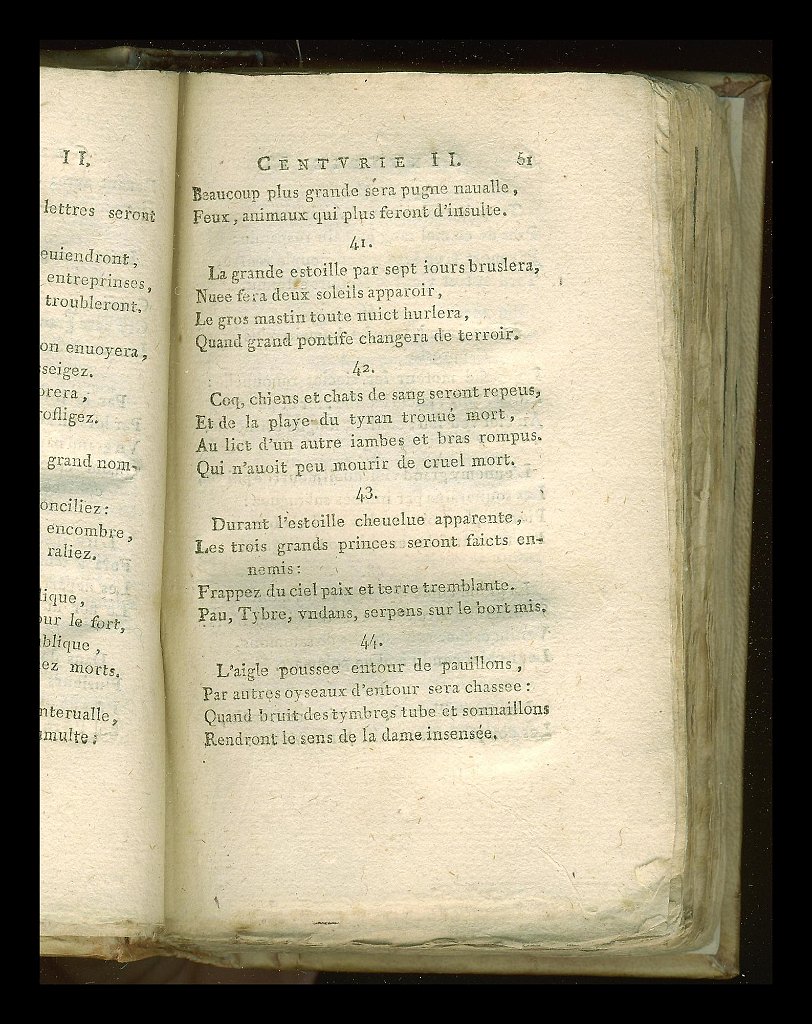 II.
lettres seront
euiendront,
entreprinses,
troubleront.
on enuoyera,
sseigez.
orera,
rofligez.
grand nom-
onciliez:
encombre,
raliez.
lique,
our le fort,
blique,
ez morts.
nterualle,
multe:
CENTVRIE II. 61
Beaucoup plus grande sera pugne naualle,
Feux, animaux qui plus feront d'insulte.
41.
La grande estoille par sept iours bruslera,
Nuee fera deux soleils apparoir,
Le gros mastin toute nuict hurlera,
Quand grand pontife changera de terroir.
42.
Coq, chiens et chats de sang seront repeus,
Et de la playe du tyran trouué mort,
Au lict d'un autre iambes et bras rompus.
Qui n'auoit peu mourir de cruel mort.
43.
Durant l'estoille cheuelue apparente,
Les trois grands princes seront faicts en-
nemis:
Frappez du ciel paix et terre tremblante.
Pau, Tybre, vndans, serpens sur le bort mis.
44.
L'aigle poussee entour de pauillons,
Par autres oyseaux d'entour sera chassee:
Quand bruit des tymbres tube et sonnaillons
Rendront le sens de la dame insensée.